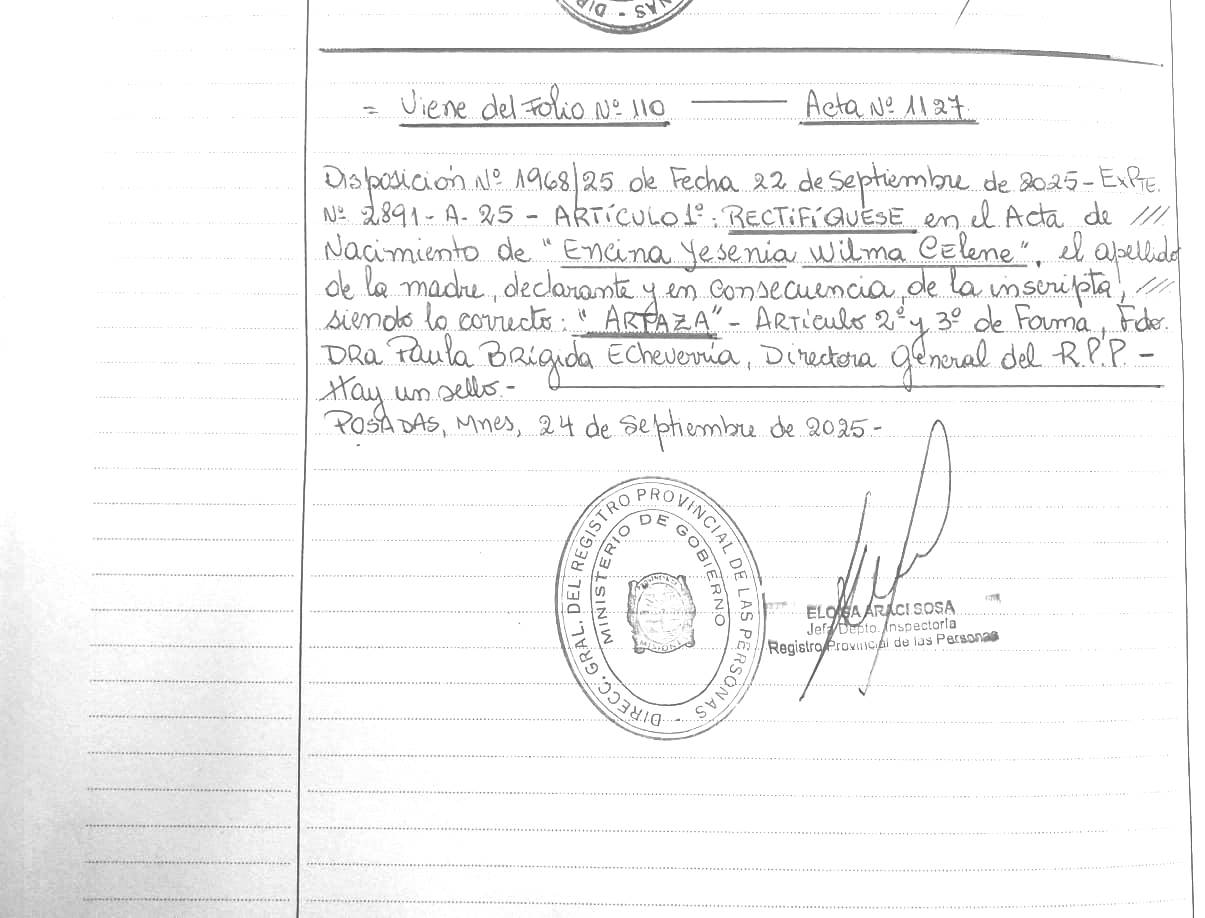 DIR - SAN
= Viene del Folio Nº 110 ——— Acta Nº 1127.
Disposición Nº 1968/25 de Fecha 22 de Septiembre de 2025 - EXPTE.
Nº 2891 - A - 25 - ARTÍCULO 1º: RECTIFÍQUESE en el Acta de ///
Nacimiento de "Encina Yesenia Wilma CElene", el apellido
de la madre, declarante y en consecuencia, de la inscripta, ///
siendo lo correcto: "ARTAZA" - ARTículos 2º y 3º de Forma, Fdo.
DRA Paula BRígida ECheverría, Directora General del R.P.P. -
Hay un sello. -
POSADAS, Mnes, 24 de Septiembre de 2025 -
DIRECC. GRAL. DEL REGISTRO PROVINCIAL DE LAS PERSONAS -
MINISTERIO DE GOBIERNO
ELOISA ARACI SOSA
Jefa Depto. Inspectoría
Registro Provincial de las Personas